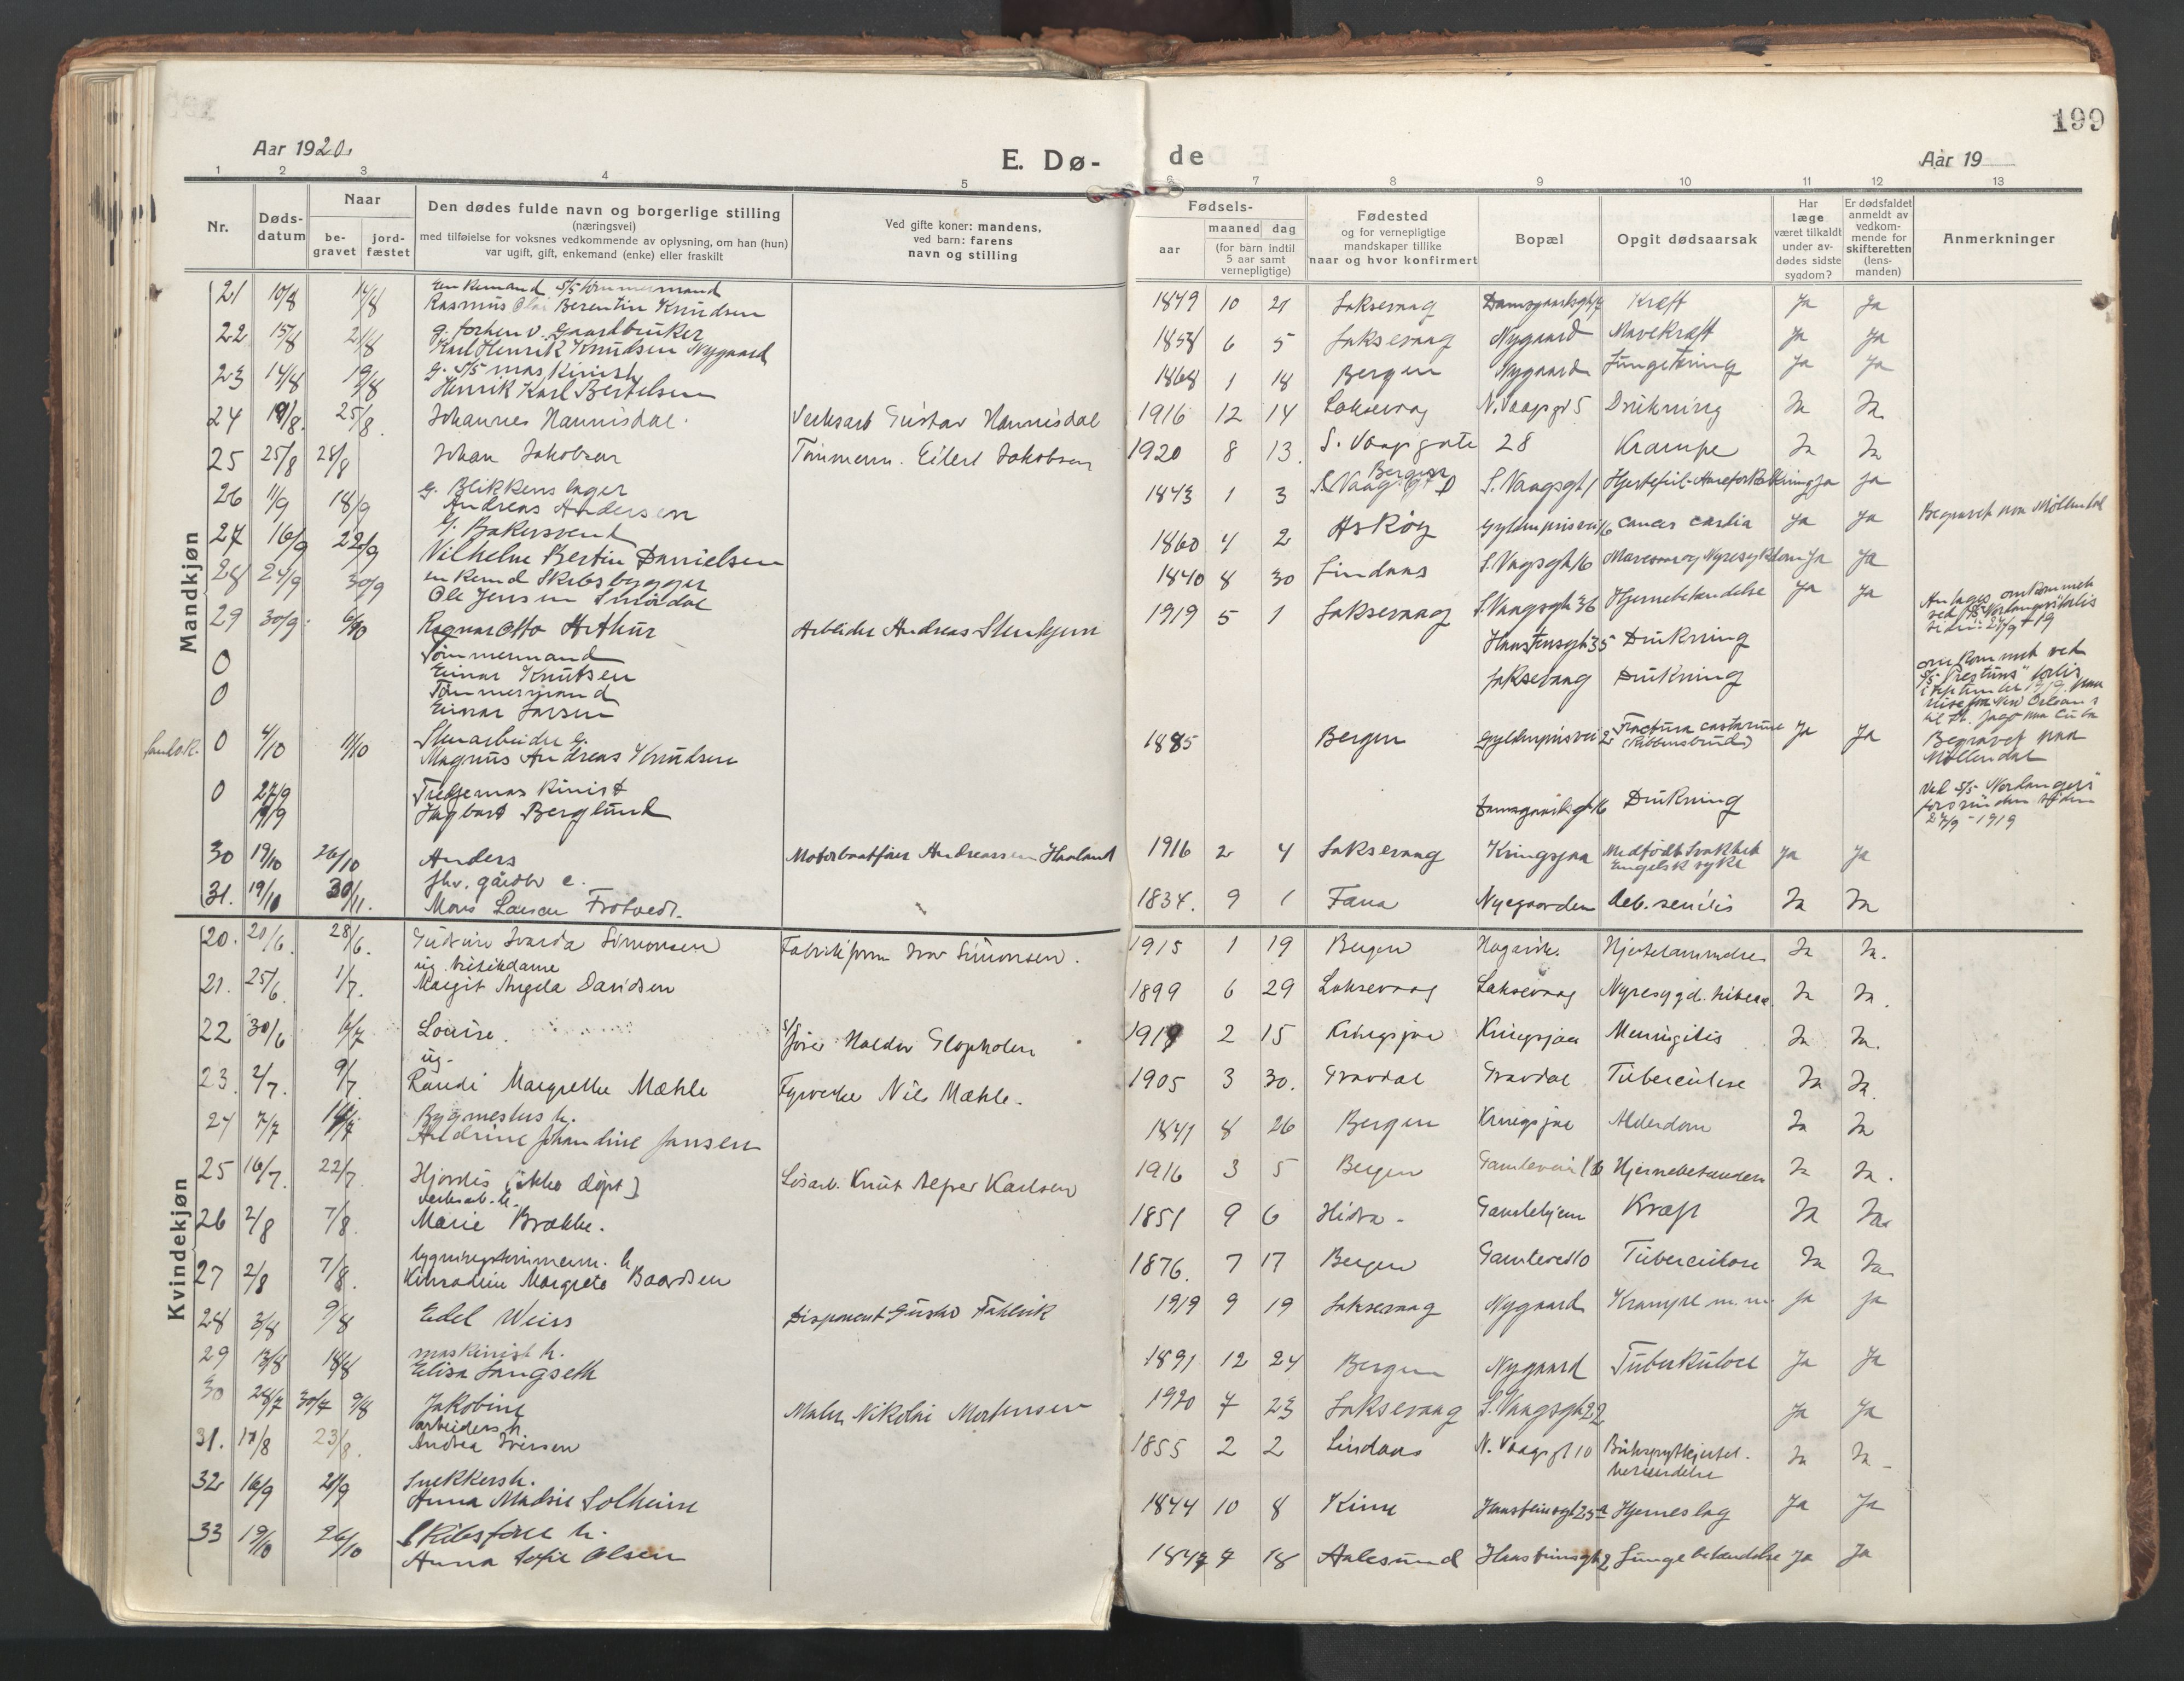 199
Aar 1920.
E. Dø-
de
Aar 19
1 2 3 4 5 6 7 8 9 10 11 12 13
Nr.
Døds-
datum
Naar
be-
gravet
jord-
fæstet
Den dødes fulde navn og borgerlige stilling
(næringsvei)
med tilføielse for voksnes vedkommende av oplysning, om han (hun)
var ugift, gift, enkemand (enke) eller fraskilt
Ved gifte koner: mandens,
ved barn: farens
navn og stilling
Fødsels-
aar
maaned dag
(for barn indtil
5 aar samt
vernepligtige)
Fødested
og for vernepligtige
mandskaper tillike
naar og hvor konfirmert
Bopæl
Opgit dødsaarsak
Har
læge
været tilkaldt
under av-
dødes sidste
sygdom?
Er dødsfaldet
anmeldt av
vedkom-
mende for
skifteretten
(lens-
manden)
Anmerkninger
Mandkjøn
enkemand S/S tömmermand
21 10/8 14/8 Rasmus Olai Berentin Knudsen 1849 10 21 Laksevaag Kræft Ja Ja
g. forhenv. gaardbruker
22 15/8 21/8 Karl Henrik Knudsen Nygaard 1858 6 5 Laksevaag Nygaard Mavekræft Ja Ja
g. S/S maskinist
23 14/8 19/8 Henrik Karl Bertelsen 1868 1 18 Bergen Nygaard Lungetæring Ja Ja
24 19/8. 25/8. Johannes Hannisdal. Verksarb Gustav Hannisdal 1916 12 14 Laksevaag N. Vaagsgt 5 Drukning Ja Ja.
25 25/8 28/8 Johan Jakobsen Tömmerm. Eilert Jakobsen 1920 8 13. S. Vaagsgate 28 Krampe Ja Ja
g. Blikkenslager
26 11/9 18/9 Andreas Andersen 1843 1 3 Bergen S. Vaagsgt 1 Hjertefeil-Aareforkalkning Ja Ja Begravet paa Møllendal
g. Bakersvend
27 16/9 22/9 Vilhelm Bertin Danielsen 1860 4 2 Askøy Gyldenprisvei 16 cancer cardia Ja Ja
enkemd Skibsbygger
28 24/9 30/9 Ole Jensen Smördal 1840 8 30 Lindaas S. Vaagsgt 16 Mavesaar og Nyresykdom Ja Ja
29 30/9. 6/10 Ragnar Otto Arthur Arbeider Andreas Stenkjern 1919 5 1 Laksevaag S. Vaagsgt 36 Hjernebetændelse Ja Ja
0 Tömmermand
Einar Knutsen Drukning
Antages omkommet
0 Tömmermand
Einar Larsen Laksevaag Drukning
omkommet ved
forlis
i september 1919 paa
reise fra New Orleans
til St. Jago paa Cuba
0 4/10 11/10 Stenarbeider g.
Magnus Andreas Knudsen 1885 Bergen Gyldenprisvei 2 Fractura costarum
(Ribbensbrudd) Ja Ja Begravet paa
Møllendal
0 27/9
19/9 Tredjemaskinist
Hagbart Berglund Damsgaardsgt 16 Drukning
Ved S/S Norlangers
forsvinden siden
27/9 - 1919
30 19/10 26/10 Anders Motorbaatfører Andreassen Haaland 1916 2 4 Laksevaag Kringsjaa Medfødt Svakhet
Engelsk syke Ja Ja
fhv. gårdbr e.
31. 19/10 30/11. Mons Larsen Trotvedt. 1834. 9 1 Fana Nyegaarden Deb. senilis Ja Ja
Kvindekjøn
20. 21/6. 28/6. Gudrun Ivarda Simonsen Fabrikform Ivar Simonsen. 1915 1 19 Bergen Ja Ja.
ug. butikdame
21. 25/6. 1/7. Margit Angela Davidsen 1899 6 29 Laksevaag Laksevaag Nyresygd. Ja Ja.
22 30/6 6/7 Louise. 2 15 Kringsjaa Kringsjaa Meningitis Ja Ja.
ug.
23. 2/7. 9/7. Randi Margrethe Mæhle Fyrverker Nils Mæhle. 1905 3 30. Gravdal Gravdal Tuberculose Ja Ja.
Bygmesters h.
24 7/7 14/7 Andrine Johandine Jansen 1841 8 26 Bergen Kringsjaa Alderdom Ja Ja
25 16/7. 22/7. Hjordis (ikke døpt) Løsarb. Knut Alfrer Karlsen 1916 3 5 Bergen Hjernebetændelse Ja Ja.
verksarb. h.
26 2/8 7/8. Marie Brække. 1851 9 6 Hidra - Gamlehjem Kræft Ja Ja
bygningstömmerm. h
27 2/8 7/8. Konradine Margrete Baardsen 1876. 7 17 Bergen Tuberculose Ja Ja
28 3/8 9/8 Edel Weiss Disponent 1919 9 19 Laksevaag Nygaard Krampe m.m. Ja Ja
maskinist h.
29 13/8 18/8 Elisa Langseth 1891 12 24 Bergen Nygaard Tuberkulose Ja Ja
30 28/7 30/7 9/8 Jakobine Maler Nikolai Mortensen 1920 7 23 Laksevaag S. Vaagsgt 22 Ja Ja
arbeiders h.
31. 17/8 23/8. Andrea Iversen 1855 2 2 Lindaas N. Vaagsgt 10 Ja Ja -
Snekkersh.
32 16/9 21/9 Anna Madsie Solheim 1844 10 8 Kinn Haasteinsgt 25a Hjerneslag Ja Ja
Skibsförer h.
33 19/10 26/10 Anna Sofie Olsen 1847 7 18 Aalesund Haasteinsgt 2 Lungebetændelse Ja Ja